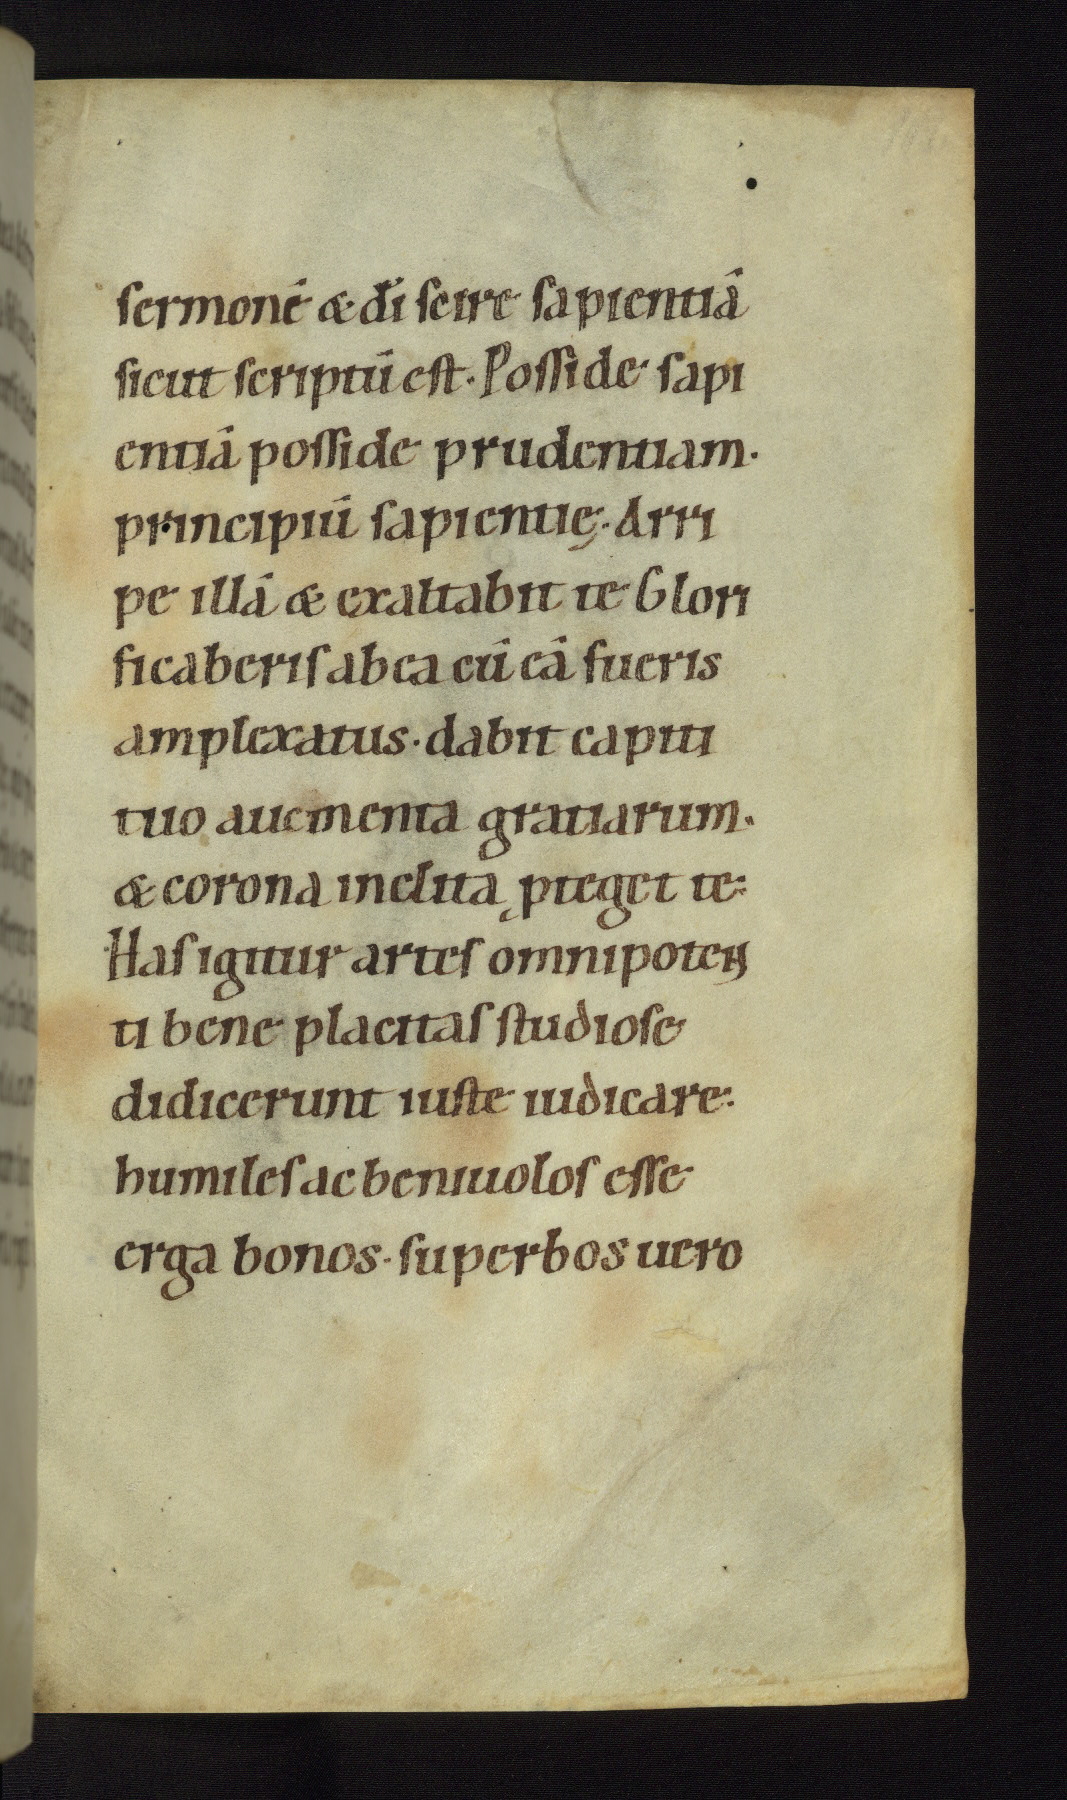 sermonē & dī scire sapientiā
sicut scriptū est. Posside sapi
entiā posside prudentiam.
principiū sapientię. Arri
pe illā & exaltabit te Glori
ficaberis ab ea cū eā fueris
amplexatus. dabit capiti
tuo aucmenta gratiarum.
& corona inclita ꝓteget te:
Has igitur artes omnipoten
ti bene placitas studiose
didicerunt iuste iudicare.
humiles ac beniuolos esse
erga bonos. superbos uero